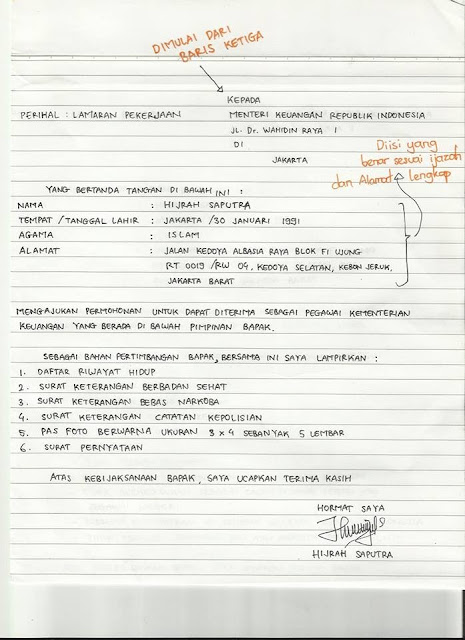 DIMULAI DARI
BARIS KETIGA
KEPADA
PERIHAL : LAMARAN PEKERJAAN MENTERI KEUANGAN REPUBLIK INDONESIA
JL. Dr. WAHIDIN RAYA 1
DI
JAKARTA
Diisi yang
benar sesuai ijazah
dan Alamat lengkap
YANG BERTANDA TANGAN DI BAWAH INI :
NAMA : HIJRAH SAPUTRA
TEMPAT /TANGGAL LAHIR : JAKARTA /30 JANUARI 1991
AGAMA : ISLAM
ALAMAT : JALAN KEDOYA ALBASIA RAYA BLOK F1 UJUNG
RT 0019 /RW 04, KEDOYA SELATAN, KEBON JERUK,
JAKARTA BARAT
MENGAJUKAN PERMOHONAN UNTUK DAPAT DITERIMA SEBAGAI PEGAWAI KEMENTERIAN
KEUANGAN YANG BERADA DI BAWAH PIMPINAN BAPAK.
SEBAGAI BAHAN PERTIMBANGAN BAPAK, BERSAMA INI SAYA LAMPIRKAN :
1. DAFTAR RIWAYAT HIDUP
2. SURAT KETERANGAN BERBADAN SEHAT
3. SURAT KETERANGAN BEBAS NARKOBA
4. SURAT KETERANGAN CATATAN KEPOLISIAN
5. PAS FOTO BERWARNA UKURAN 3 X 4 SEBANYAK 5 LEMBAR
6. SURAT PERNYATAAN
ATAS KEBIJAKSANAAN BAPAK, SAYA UCAPKAN TERIMA KASIH
HORMAT SAYA
HIJRAH SAPUTRA